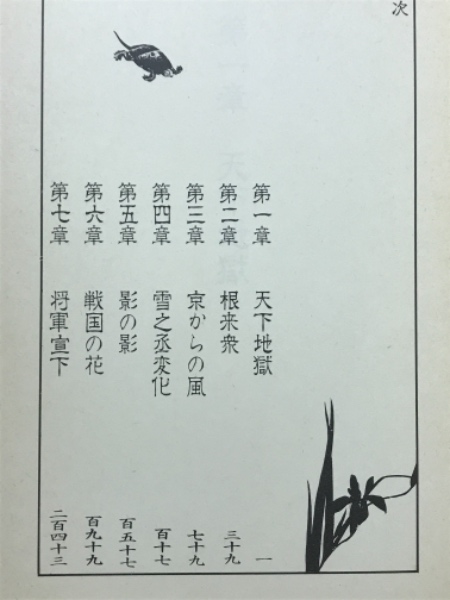 次
第一章 天下地獄 一
第二章 根来衆 三十九
第三章 京からの風 七十九
第四章 雪之丞変化 百十七
第五章 影の影 百五十七
第六章 戦国の花 百九十九
第七章 将軍宣下 二百四十三